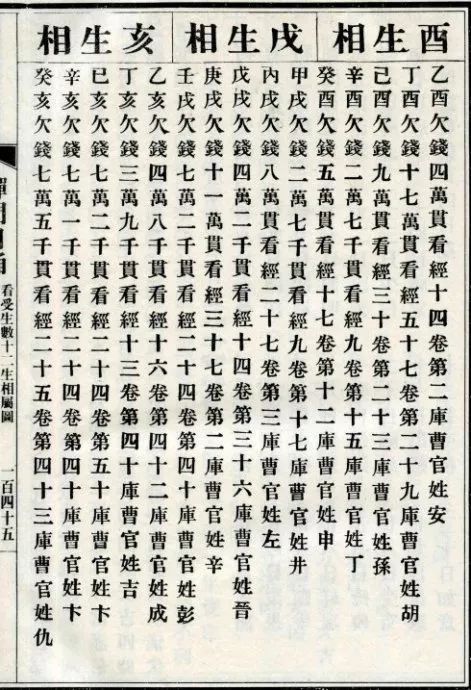 酉生相
乙酉欠錢四萬貫看經十四卷第二庫曹官姓安
丁酉欠錢十七萬貫看經五十七卷第二十九庫曹官姓胡
己酉欠錢九萬貫看經三十卷第二十三庫曹官姓孫
辛酉欠錢二萬七千貫看經九卷第十五庫曹官姓丁
癸酉欠錢五萬貫看經十七卷第十二庫曹官姓申
戌生相
甲戌欠錢二萬七千貫看經九卷第十七庫曹官姓井
丙戌欠錢八萬貫看經二十七卷第三庫曹官姓左
戊戌欠錢四萬二千貫看經十四卷第三十六庫曹官姓晉
庚戌欠錢十一萬貫看經三十七卷第二庫曹官姓辛
壬戌欠錢七萬二千貫看經二十四卷第四十庫曹官姓彭
亥生相
乙亥欠錢四萬八千貫看經十六卷第四十二庫曹官姓成
丁亥欠錢三萬九千貫看經十三卷第四十庫曹官姓吉
己亥欠錢七萬二千貫看經二十四卷第五十庫曹官姓卞
辛亥欠錢七萬一千貫看經二十四卷第四十庫曹官姓卞
癸亥欠錢七萬五千貫看經二十五卷第四十三庫曹官姓仇
看受生數十二生相屬圖
一百四十五